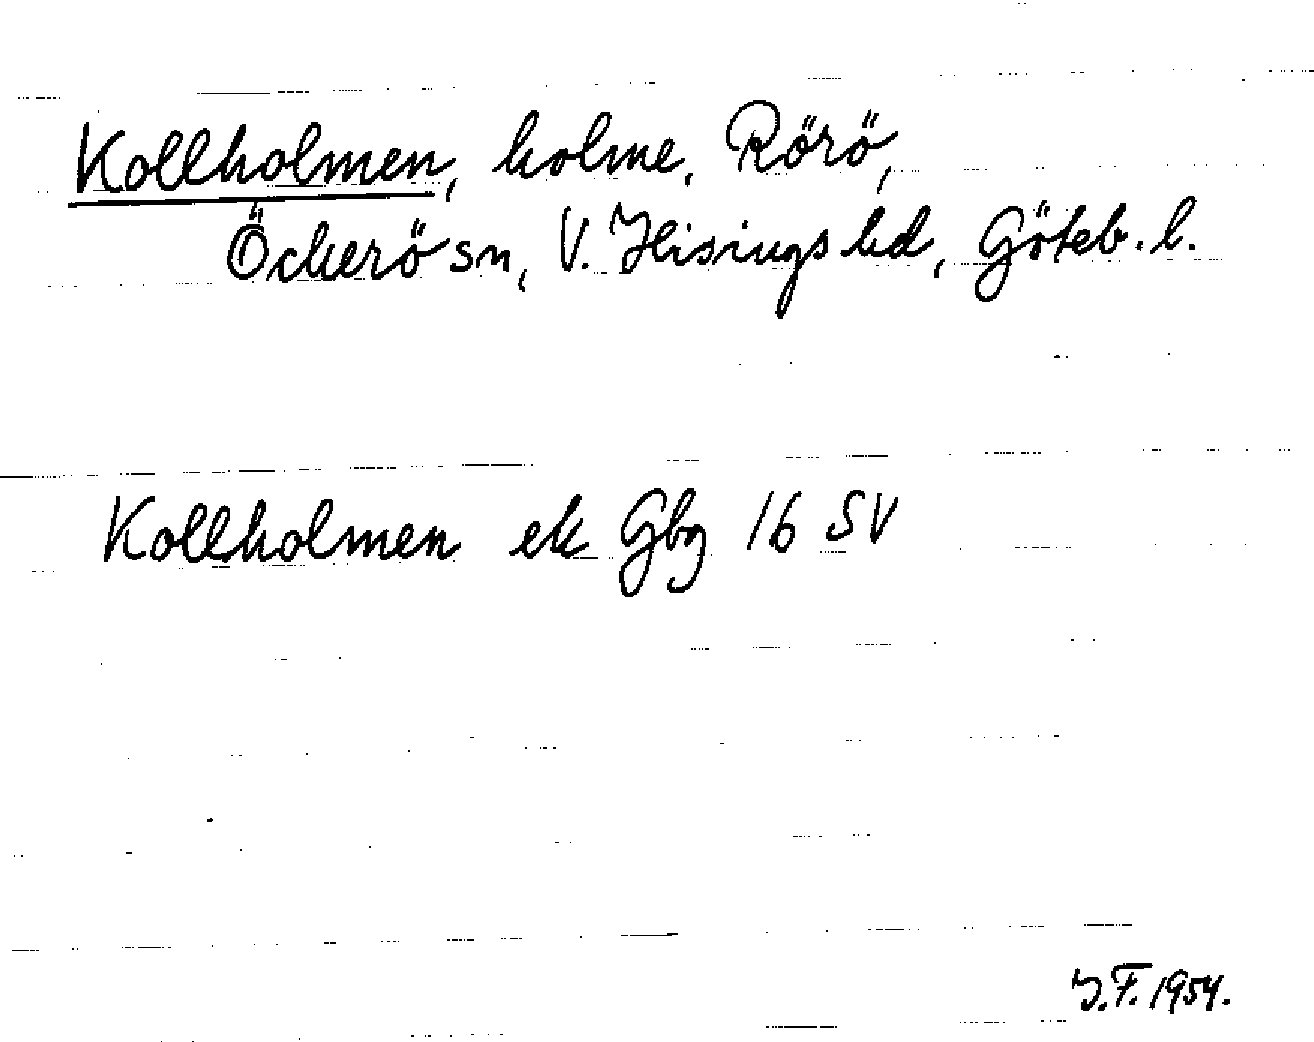 Kollholmen, holme, Rörö,
Öckerö sn, V. Hisings hd, Göteb. l.
Kollholmen ek Gbg 16 SV
J.F. 1954.